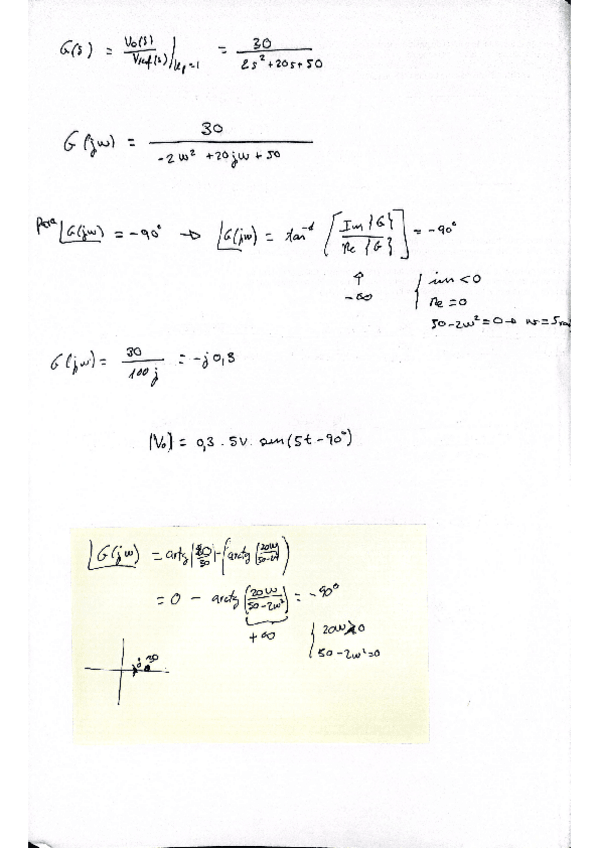 G(s) = Vo(s)/Vref(s)|kp=1 = 30/(2s²+20s+50)
G(jw) = 30/(-2w²+20jw+50)
Para ∠G(jw) = -90° → ∠G(jw) = tan⁻¹[Im{G}/Re{G}] = -90°
↑ { im<0
-∞ Re=0
50-2w²=0→ w=5rad
G(jw) = 30/100j = -j0,3
|Vo| = 0,3 . 5V. sen(5t-90°)
∠G(jw) = arctg - (arctg(20w
= 0 - arctg(20w/50-2w²) = -90°
+∞ { 20w>0
50-2w²=0
30